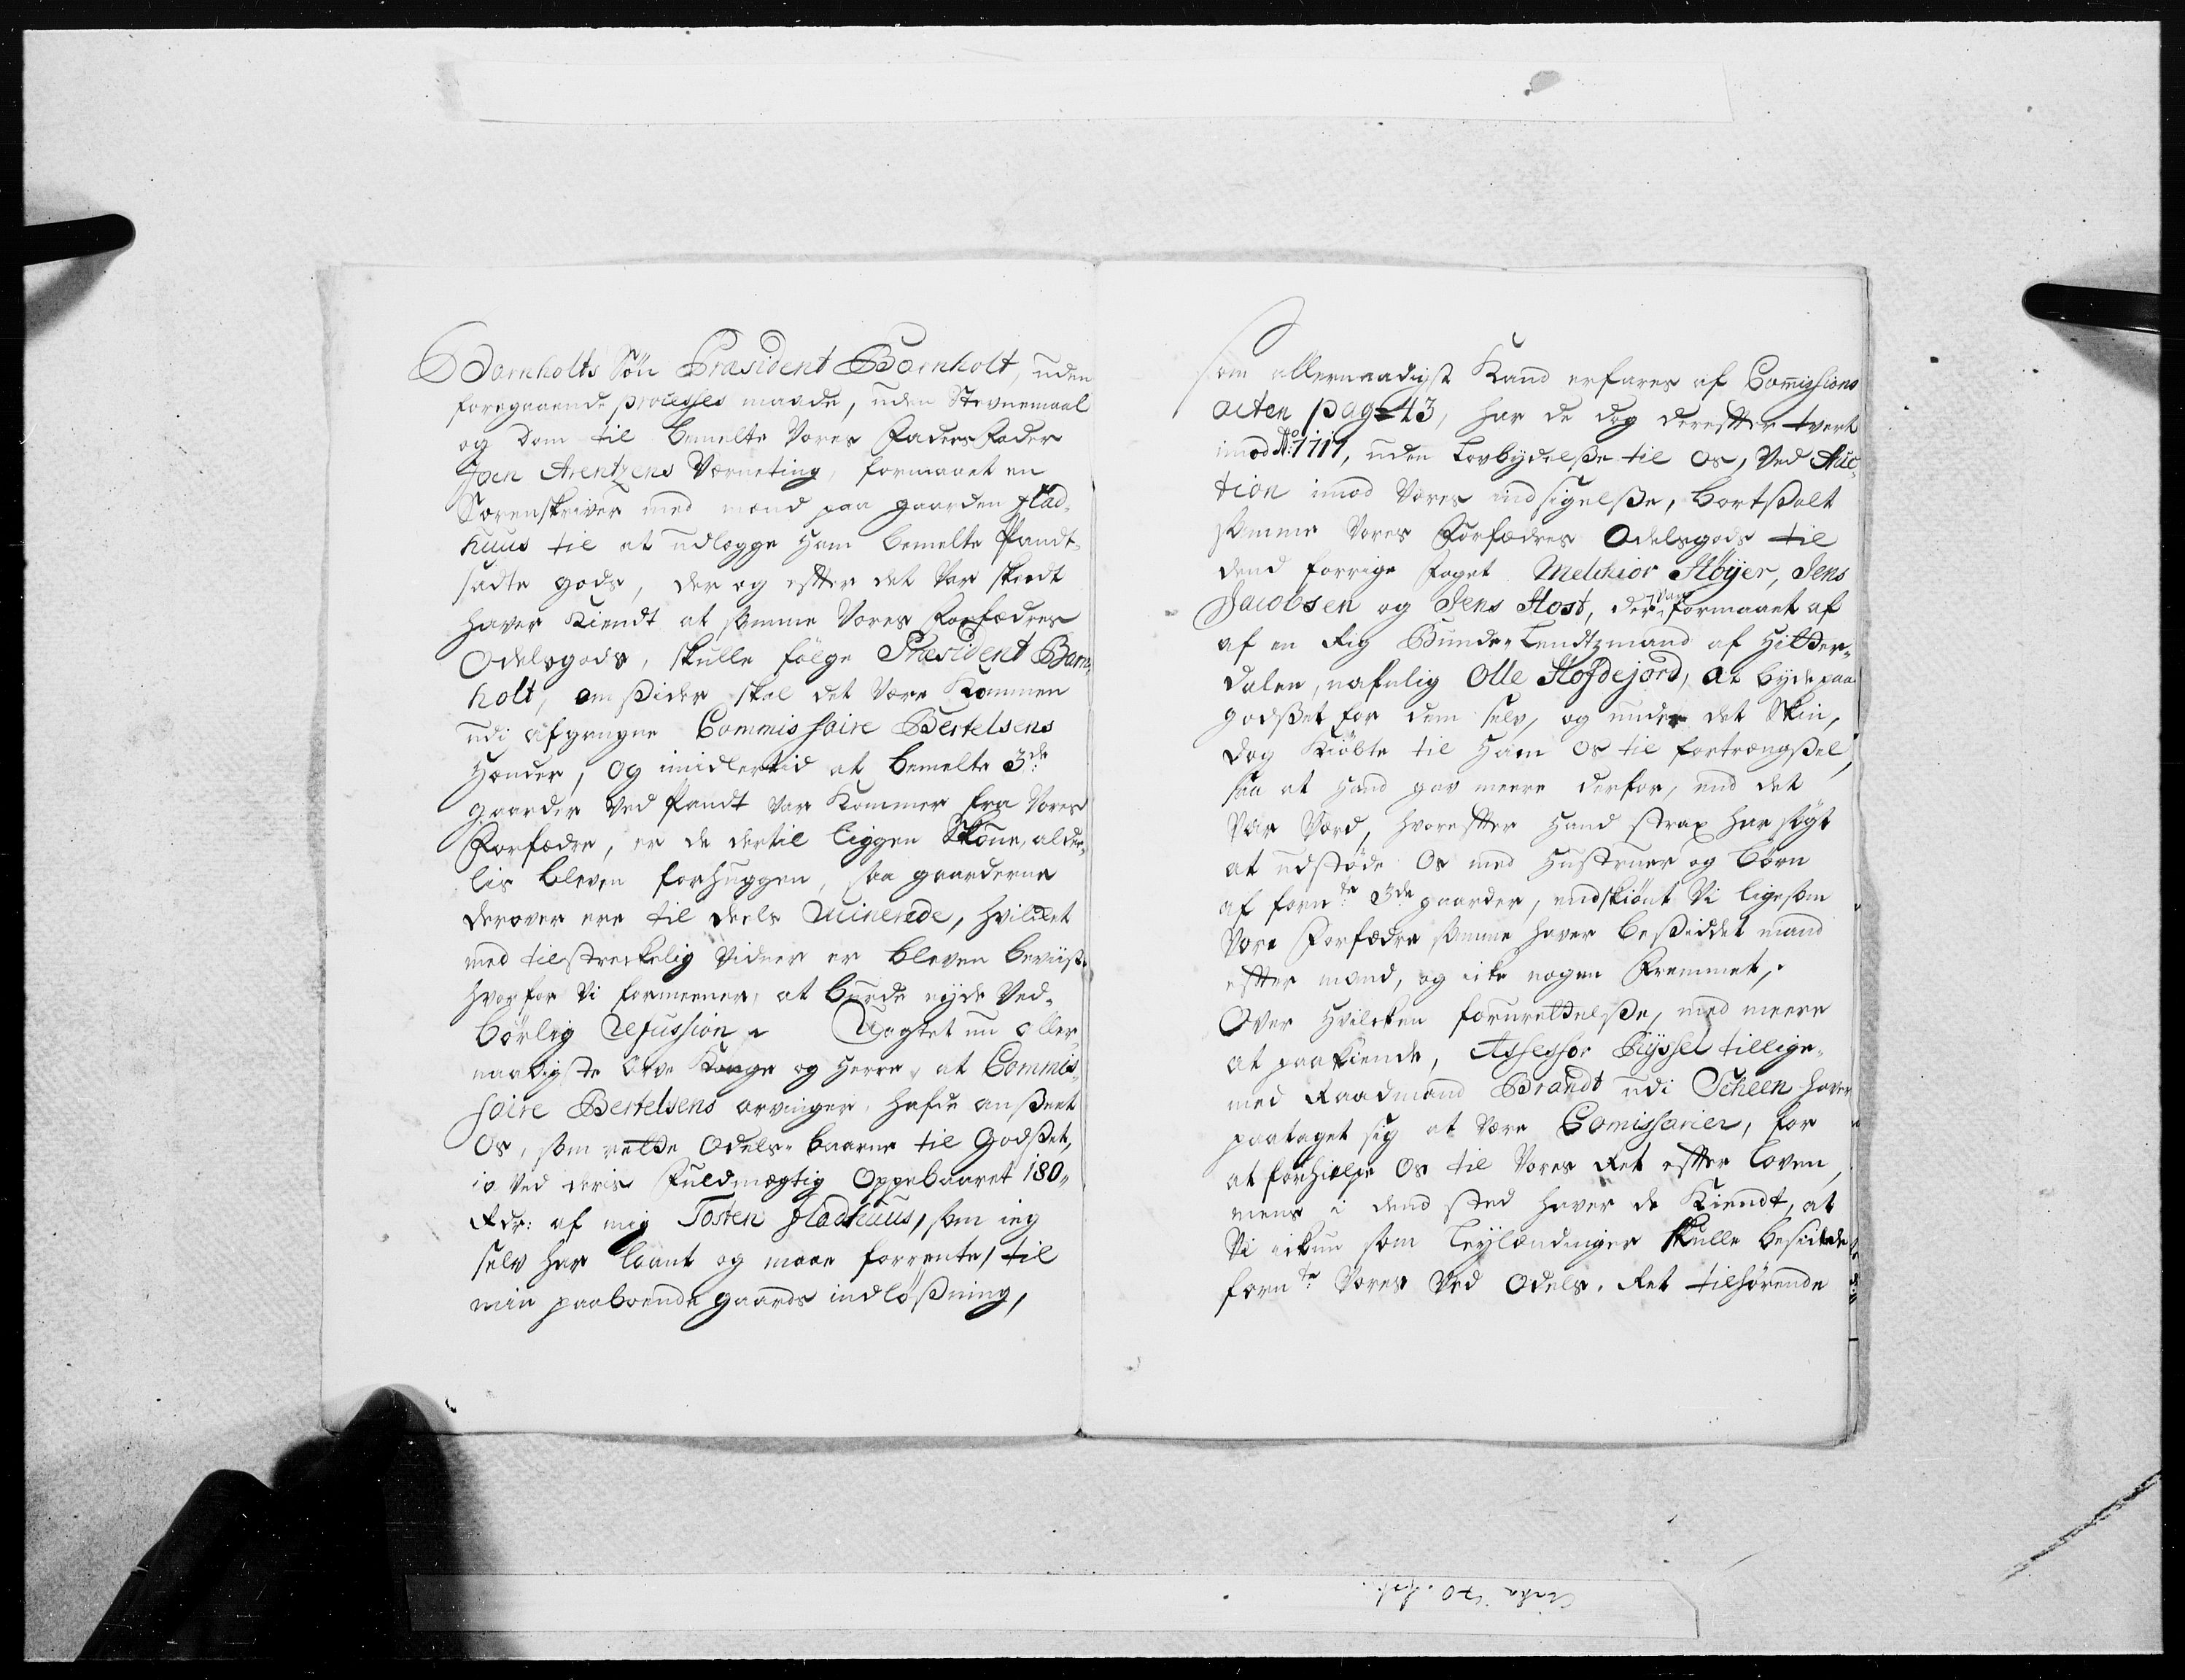 Barnholts Søn Præsident Barnholt, uden
foregaaende processes maade, uden Stevnemaal
og Dom til bemelte Vores Faders Fader
Joen Arentzens Værneting, formaaet en
Sorenskriver med mænd paa gaarden Flad-
huus til at udlægge ham bemelte Pandt-
satte gods, der og effter det Var skeedt
haver Kiendt at samme Vores Forfædres
Odelsgods, skulle følge Præsident Barn-
holt, omsider skal det Være Kommen
udi afgangne Commissaire Bertelsens
Hænder, og imidlertid at bemelte 3de
gaarder ved Pandt var Kommen fra Vores
Forfædre, er de dertil liggen Skoue, alde-
lis bleven forhuggen, saa gaarderne
derover ere til deels Ruinerede, hvilcket
med tilstreckelig Vidner er bleven beviist.
hvorfor Vi formeener, at burde nyde Ved-
børlig Refussion. Uagtet nu aller-
naadigste Arve Konge og Herre, at Commis-
saire Bertelsens arvinger, hafde anseet
Os, som rette Odels-baarne til Godset,
io Ved deris Fuldmægtig Oppebaaret 180,,
Rdr: af mig Tosten Fladhuus, som ieg
selv har laant og maae forrente, til
min paaboende gaards indløsning,
som allernaadigst Kand erfares af Comissions
acten pag= 43, har de dog dereffter tvert
imod Ao: 1717, uden Lovbydelse til Os, Ved Auc-
tion imod Vores indsigelse, bortsolt
samme Vores Forfædres Odelsgods til
dend forrige foget Melchior Høyer, Jens
Jacobsen og Jens Host, der Var formaaet af
af en Rig Bunde-Lendtzmand af Hitter-
dalen, nafnlig Olle Hofdejord, at byde paa
godset for dem selv, og under det Skin,
dog Kiøbte til Ham Os til fortrængsel,
saa at Hand gav meere derfor, end det
Var Værd, hvoreffter Hand strax har søgt
at udstøde Os med Hustruer og børn
af forn.te 3de gaarder, endskiønt Vi ligesom
Vore Forfædre samme haver besiddet mand
effter mand, og icke nogen Fremmet,
Over Hvilcken forurettelse, med meere
at paakiende, Assessor Ryssel tillige-
med Raadmand Brandt udi Scheen haver
paataget sig at være Comissarier, for
at forhielpe Os til Vores Ret effter loven,
mens i dend sted haver de Kiendt, at
Vi ickun som Leylændinger skulle besidde
forn.te Vores Ved Odels-Ret tilhørende